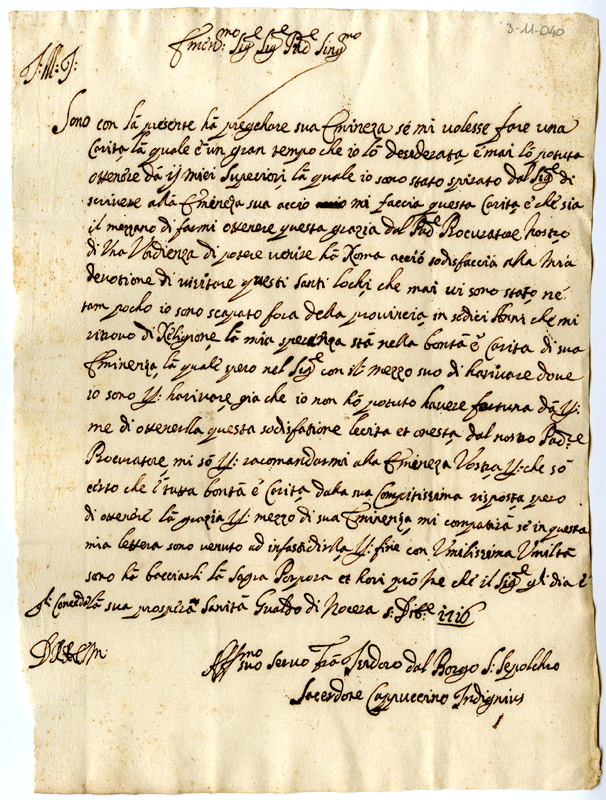 3-11-040
Emin.mo Sig.e Sig.e Pad.e Sing.mo
J: M: J:
Sono con la presente há pregehare sua Emineza sé mi volesse fare una
Carita la quale é un gran tempo che io ló desederata é mai ló potuta
ottenere dá ij miei Superiori, la quale io sono stato spirato dal Sig.e di
scrivere alla Emèneza sua accio mi faccia questa Carita é ché sia
il mezzano di farmi ottenere questa grazia dal Pad.e Procuratore Nostro
di Una Vbidienza di potere venire há Roma acció sodisfaccia alla Mia
devotione di visitare questi Santi Lochi, che mai vi sono stato né
tam pocho io sono scapato fora della provincia in sedici Anni ché mi
ritrovo di Religione, la mia speranza stá nella bontá é Carita di sua
Eminenza, la quale spero nel Sig.e con il mezzo suo di harivare dove
io sono p: harivare, gia che io non hó potuto havere fortuna dá p:
me di ottenerlla questa sodisfatione lecita et onesta dal nostro Pad.e
Procuratore mi só p: racomandarmi alla Emèneza Vostra p: che só
certo che é tutta bontá é Carita dalla sua Compitissima risposta spero
di ottenere la grazia p: mezzo di sua Eminenza mi compatirá sé in questa
mia lettera sono venuto ad infastidirlla p: fine con Umilissima Umiltá
sono há bacciarli la Sagra Porpora et hori pró ne ché il Sig.e gli dia é
gli Conceda la sua prosperá Sanitá Gualdo di Nocera Dib.e 1716
D V E Em
Aff.mo suo Servo Frá Isidoro dal Borgo S: Sepolchro
Sacerdote Cappuccino Indignius